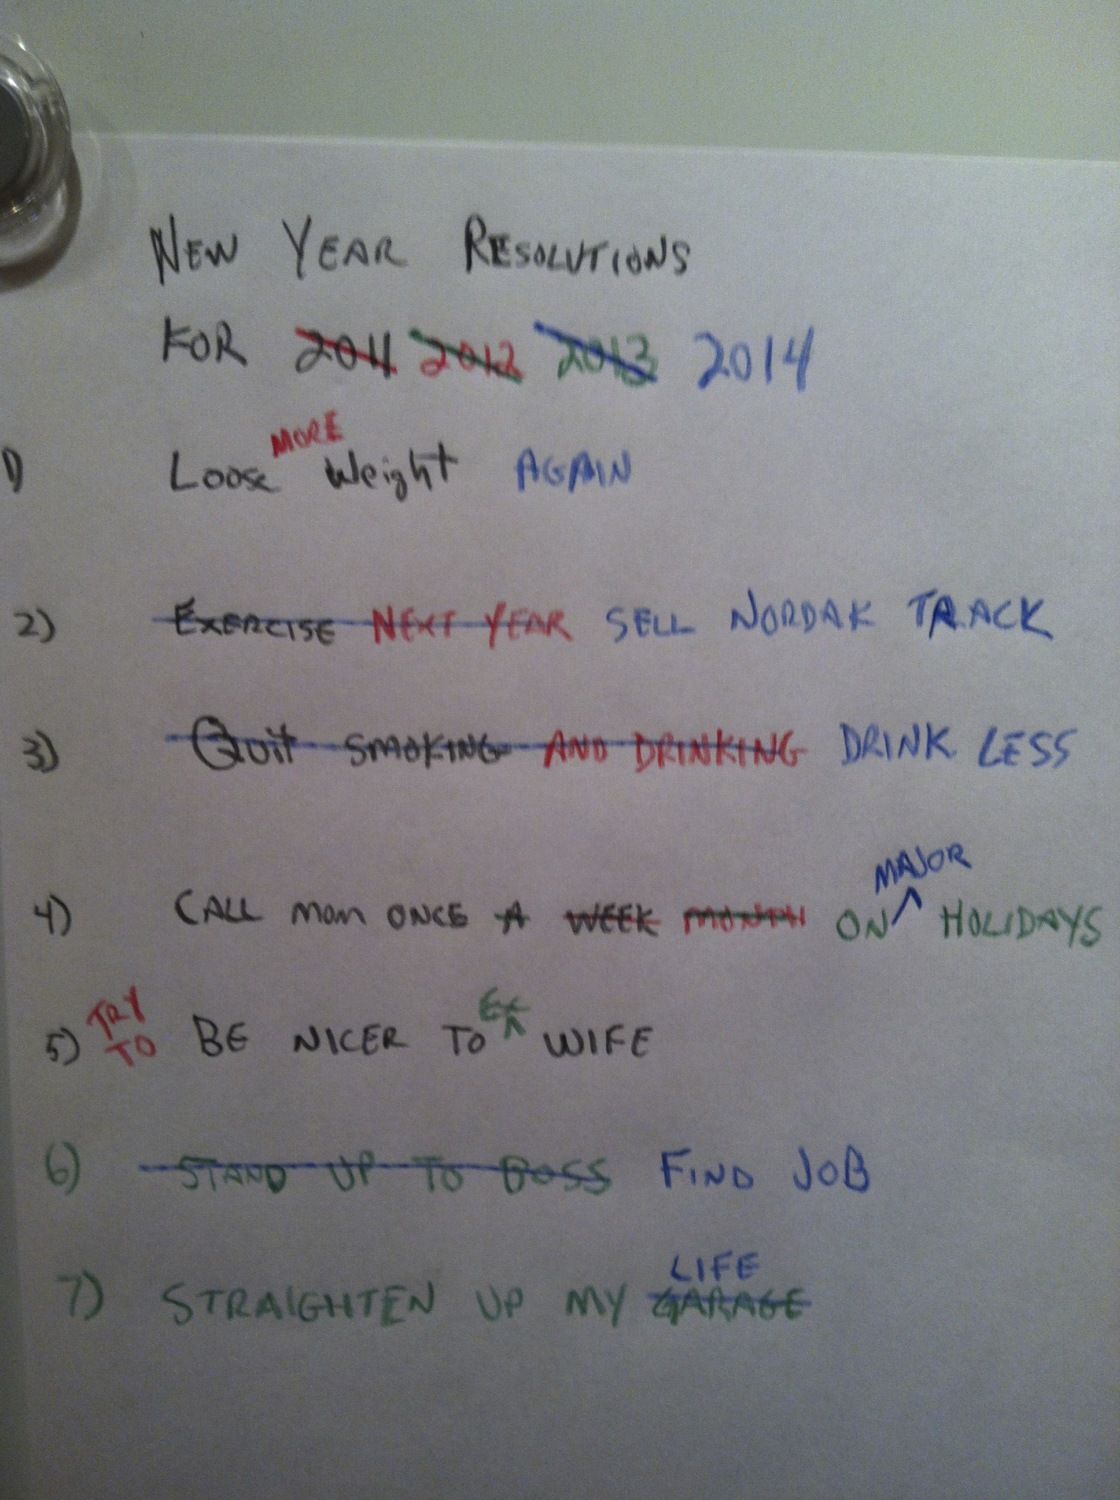 NEW YEAR RESOLUTIONS
FOR 2011 2012 2013 2014
1) Loose MORE Weight AGAIN
2) EXERCISE NEXT YEAR SELL NORDAK TRACK
3) Quit SMOKING AND DRINKING DRINK LESS
4) CALL mom ONCE A WEEK MONTH ON MAJOR HOLIDAYS
5) TRY TO BE NICER TO EX WIFE
6) STAND UP TO BOSS FIND JOB
7) STRAIGHTEN UP MY GARAGE LIFE